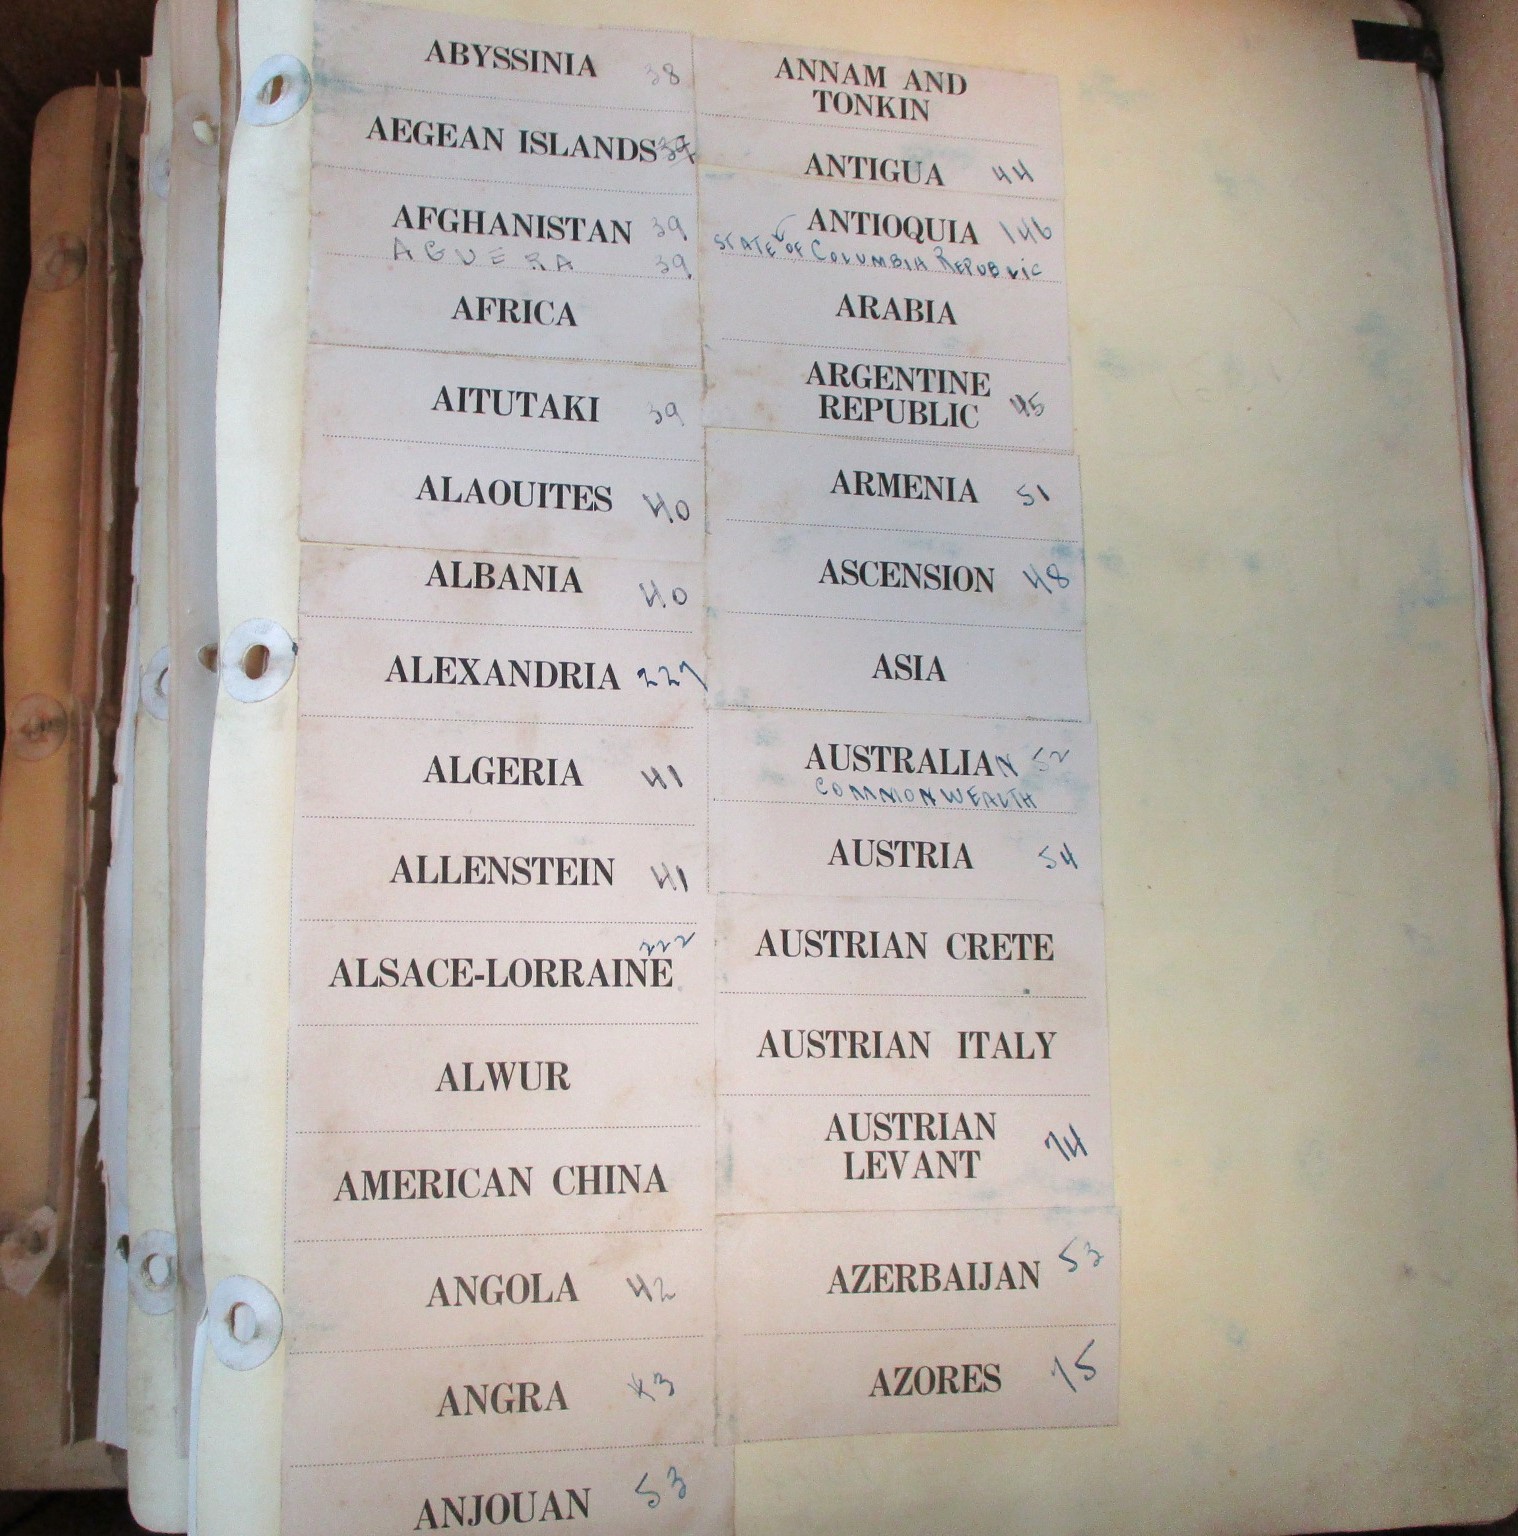 ABYSSINIA 38
AEGEAN ISLANDS
AFGHANISTAN 39
AGUERA 39
AFRICA
AITUTAKI 39
ALAOUITES 40
ALBANIA 40
ALEXANDRIA 227
ALGERIA 41
ALLENSTEIN 41
222
ALSACE-LORRAINE
ALWUR
AMERICAN CHINA
ANGOLA 42
ANGRA 43
ANJOUAN 53
ANNAM AND
TONKIN
ANTIGUA 44
ANTIOQUIA 146
STATE OF COLUMBIA REPUBLIC
ARABIA
ARGENTINE
REPUBLIC 45
ARMENIA 51
ASCENSION 48
ASIA
AUSTRALIAN 52
COMMONWEALTH
AUSTRIA 54
AUSTRIAN CRETE
AUSTRIAN ITALY
AUSTRIAN
LEVANT 74
AZERBAIJAN 53
AZORES 75